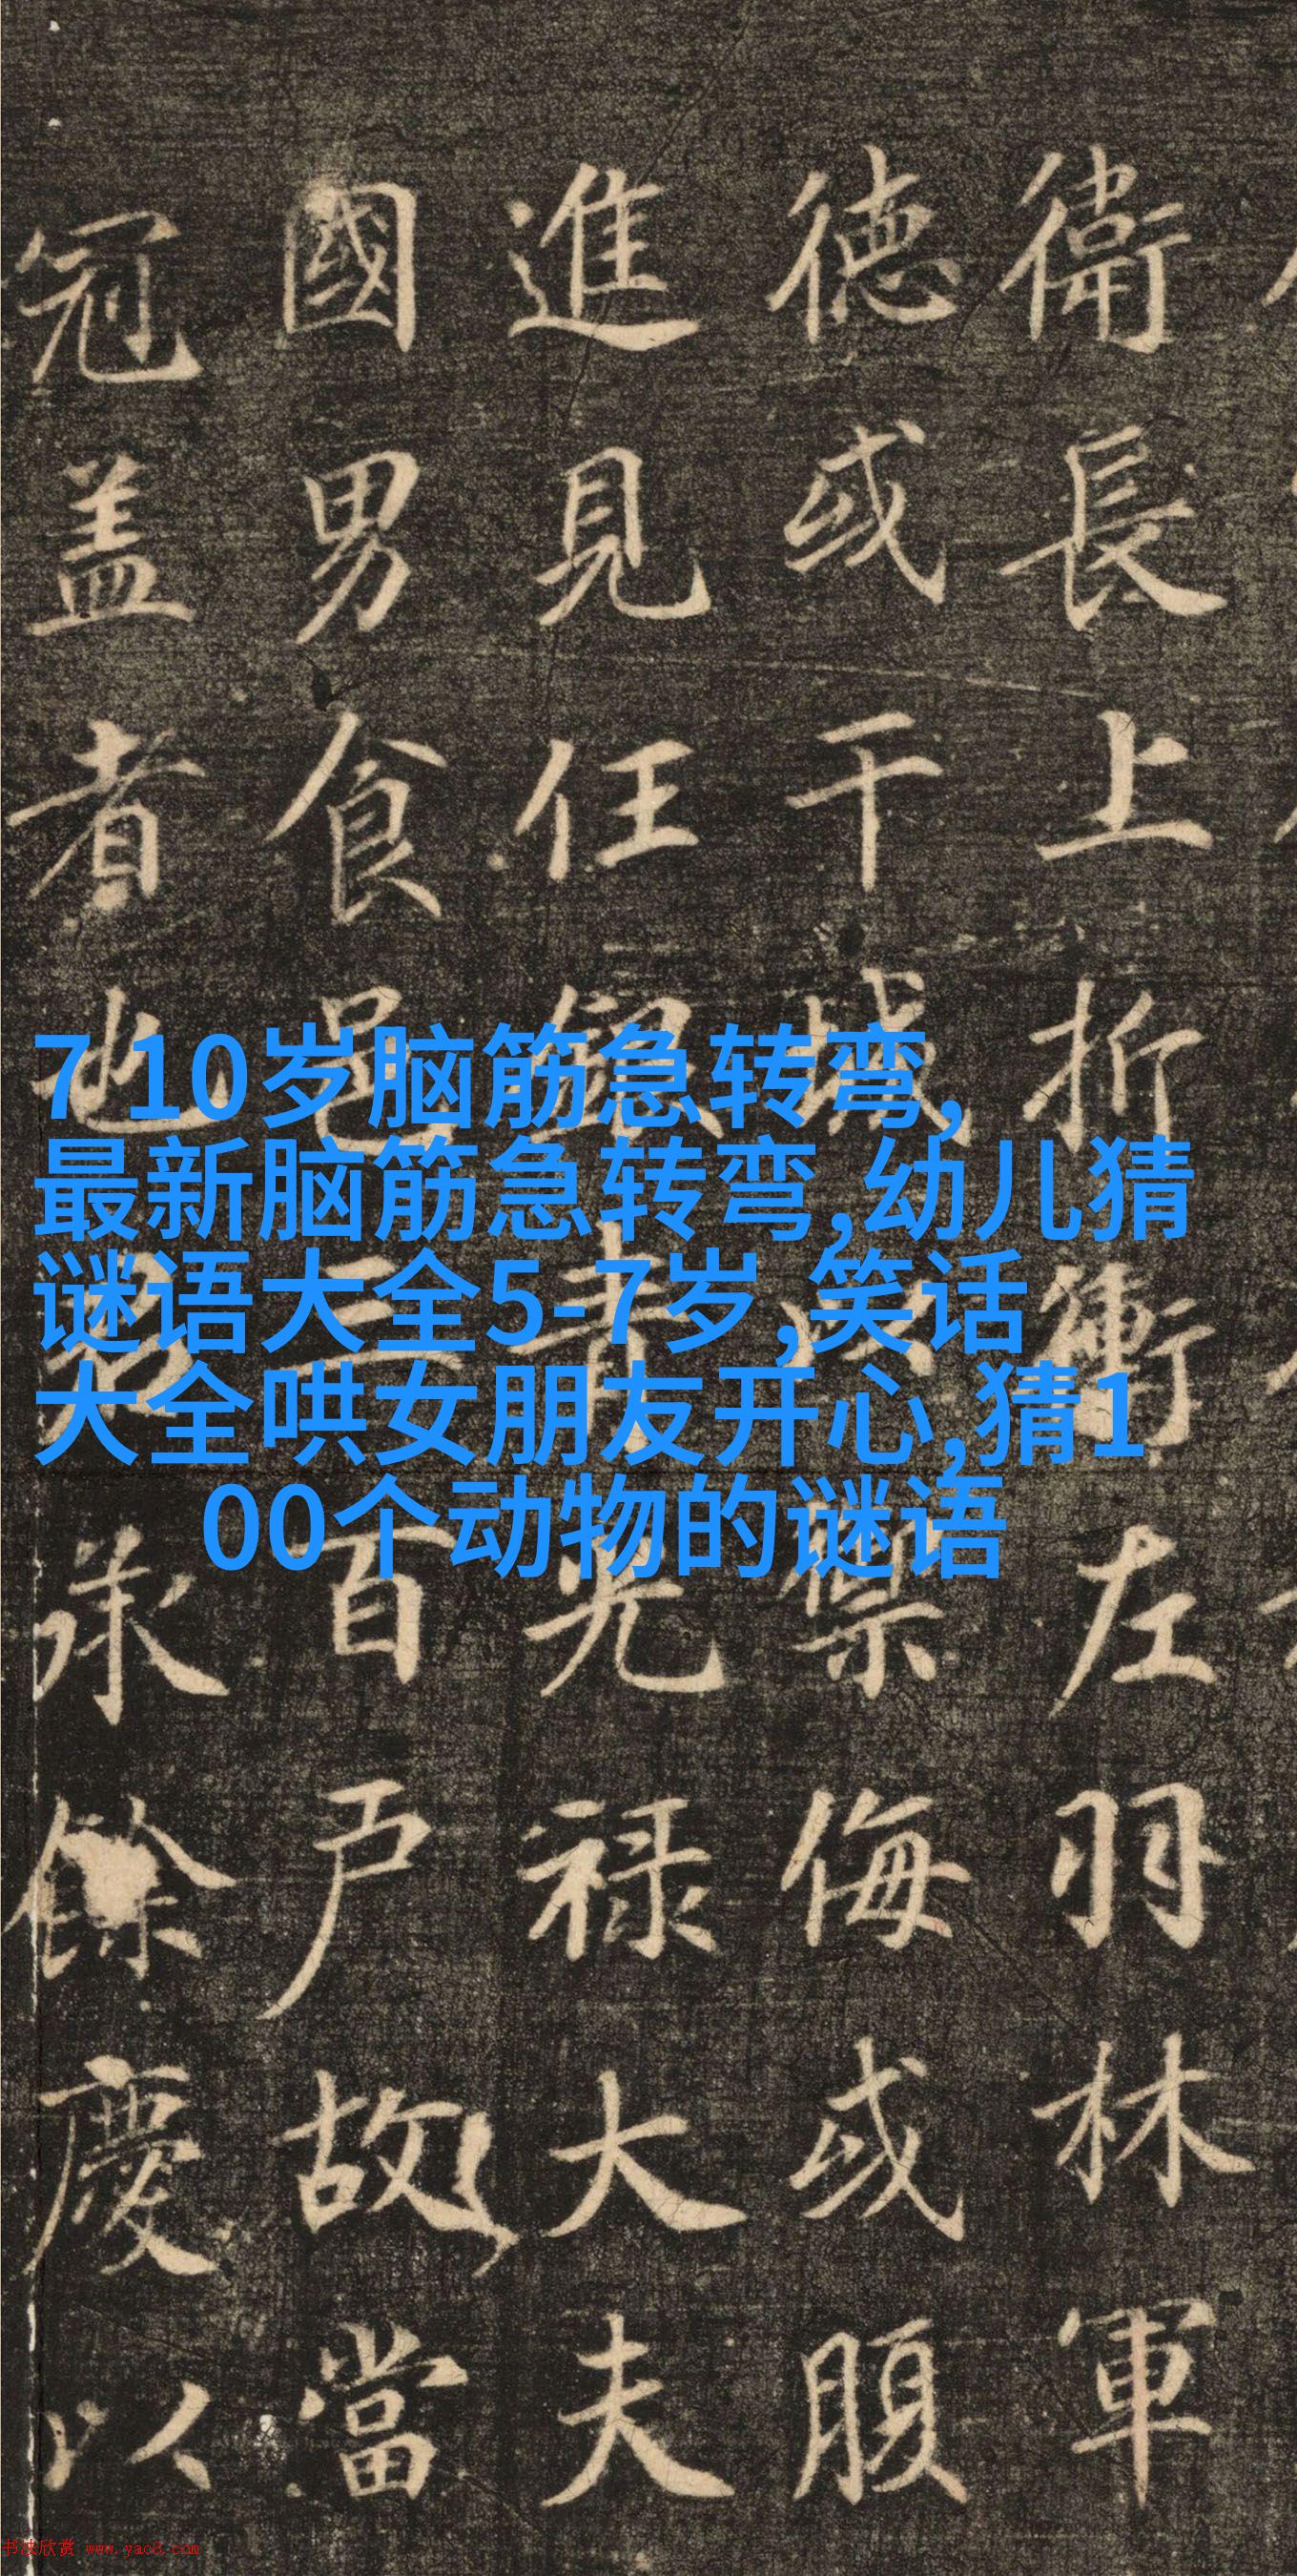 衛長上折衝左羽林軍
德或干城以禦侮或腹
進見任銀青光禄大夫
國男食邑三百戶故當
冠盖者也承餘慶以
7 10岁脑筋急转弯,
最新脑筋急转弯,幼儿猜
谜语大全5-7岁 ,笑话
大全哄女朋友开心,猜1
00个动物的谜语
书法欣赏 www.yac8.com